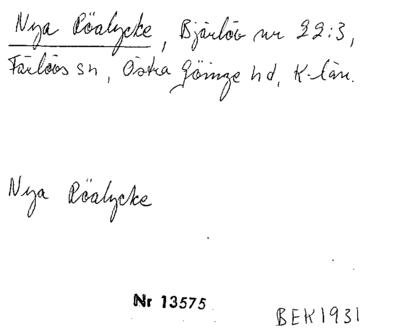 Nya Röalycke, Bjärlöv nr 22:3,
Färlövs sn, Östra Göinge hd, K-län.
Nya Röalycke
Nr 13575
BEK1931